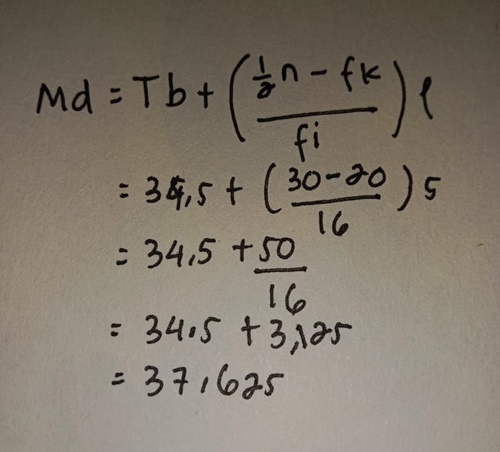 Md = Tb + (½n - fk / fi) l
= 34,5 + (30-20 / 16) 5
= 34,5 + 50/16
= 34,5 + 3,125
= 37,625